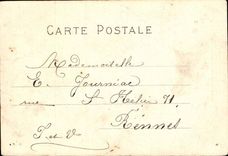 CARTE POSTALE
Mademoiselle
E. Journiac
rue St Helier 71
Rennes
I. et V.